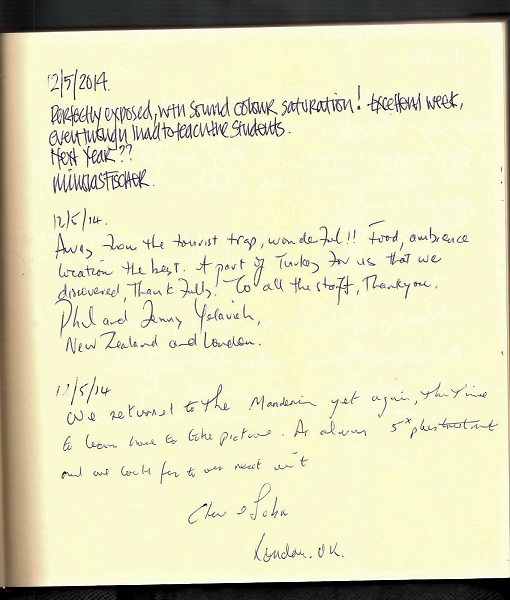 12/5/2014.
Perfectly exposed, with sound colour saturation! Excellent week,
even though I had to teach the students.
Next Year??
12/5/14.
Away from the tourist trap, wonderful!! Food, ambience
location the best. A part of Turkey for us that we
discovered, Thankfully. To all the staff, Thankyou,
Phil and Jenny
New Zealand and London.
12/5/14
We returned to the Mandarin yet again, this time
to learn how to take pictures. As always 5*
and we look for to our next visit
London. UK.